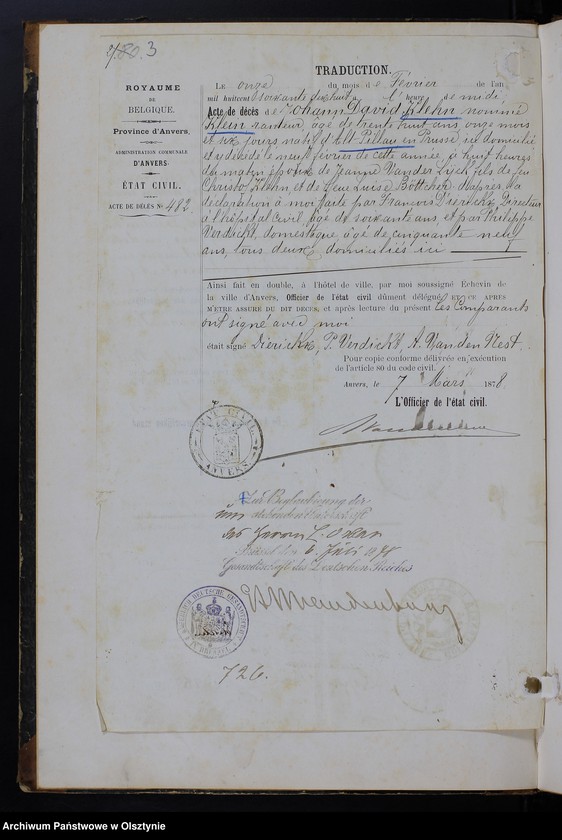 3
TRADUCTION.
ROYAUME
DE
BELGIQUE.
Province d'Anvers.
ADMINISTRATION COMMUNALE
D'ANVERS.
ÉTAT CIVIL.
ACTE DE DÉCÈS No 482
Le onze du mois de Février de l'an
mil huitcent soixante dix huit, à heures de midi,
Acte de décès de Johann David Klehn nommé
Klein, âgé de trente huit ans onze mois
et six jours natif d'Alt Pillau en Prusse, ici domicilié
et y décédé le neuf février de cette année, à huit heures
du matin époux de Jeanne Van der Lyck fils de feu
Klehn et de feue Luise Böttcher. D'après la
déclaration à moi faite par François Dierickx, Directeur
à l'hôpital civil, âgé de soixante ans, et par Philippe
Verdickt, domestique âgé de cinquante neuf
ans, tous deux domiciliés ici
Ainsi fait en double, à l'hôtel de ville, par moi soussigné Echevin de
la ville d'Anvers, Officier de l'état civil dûment délégué, ET CE APRÈS
M'ÊTRE ASSURÉ DU DIT DÉCÈS, et après lecture du présent les Comparants
ont signé avec moi
était signé Dierickx, P. Verdickt, A. Van den Nest.
Pour copie conforme délivrée en exécution
de l'article 80 du code civil.
Anvers, le 7 Mars 1878.
L'Officier de l'état civil.
ETAT CIVIL
ANVERS
Zur Beglaubigung der
des Herrn
6. Juli 1878
Gesandtschaft des Deutschen Reichs
Brandenburg
726.
Archiwum Państwowe w Olsztynie